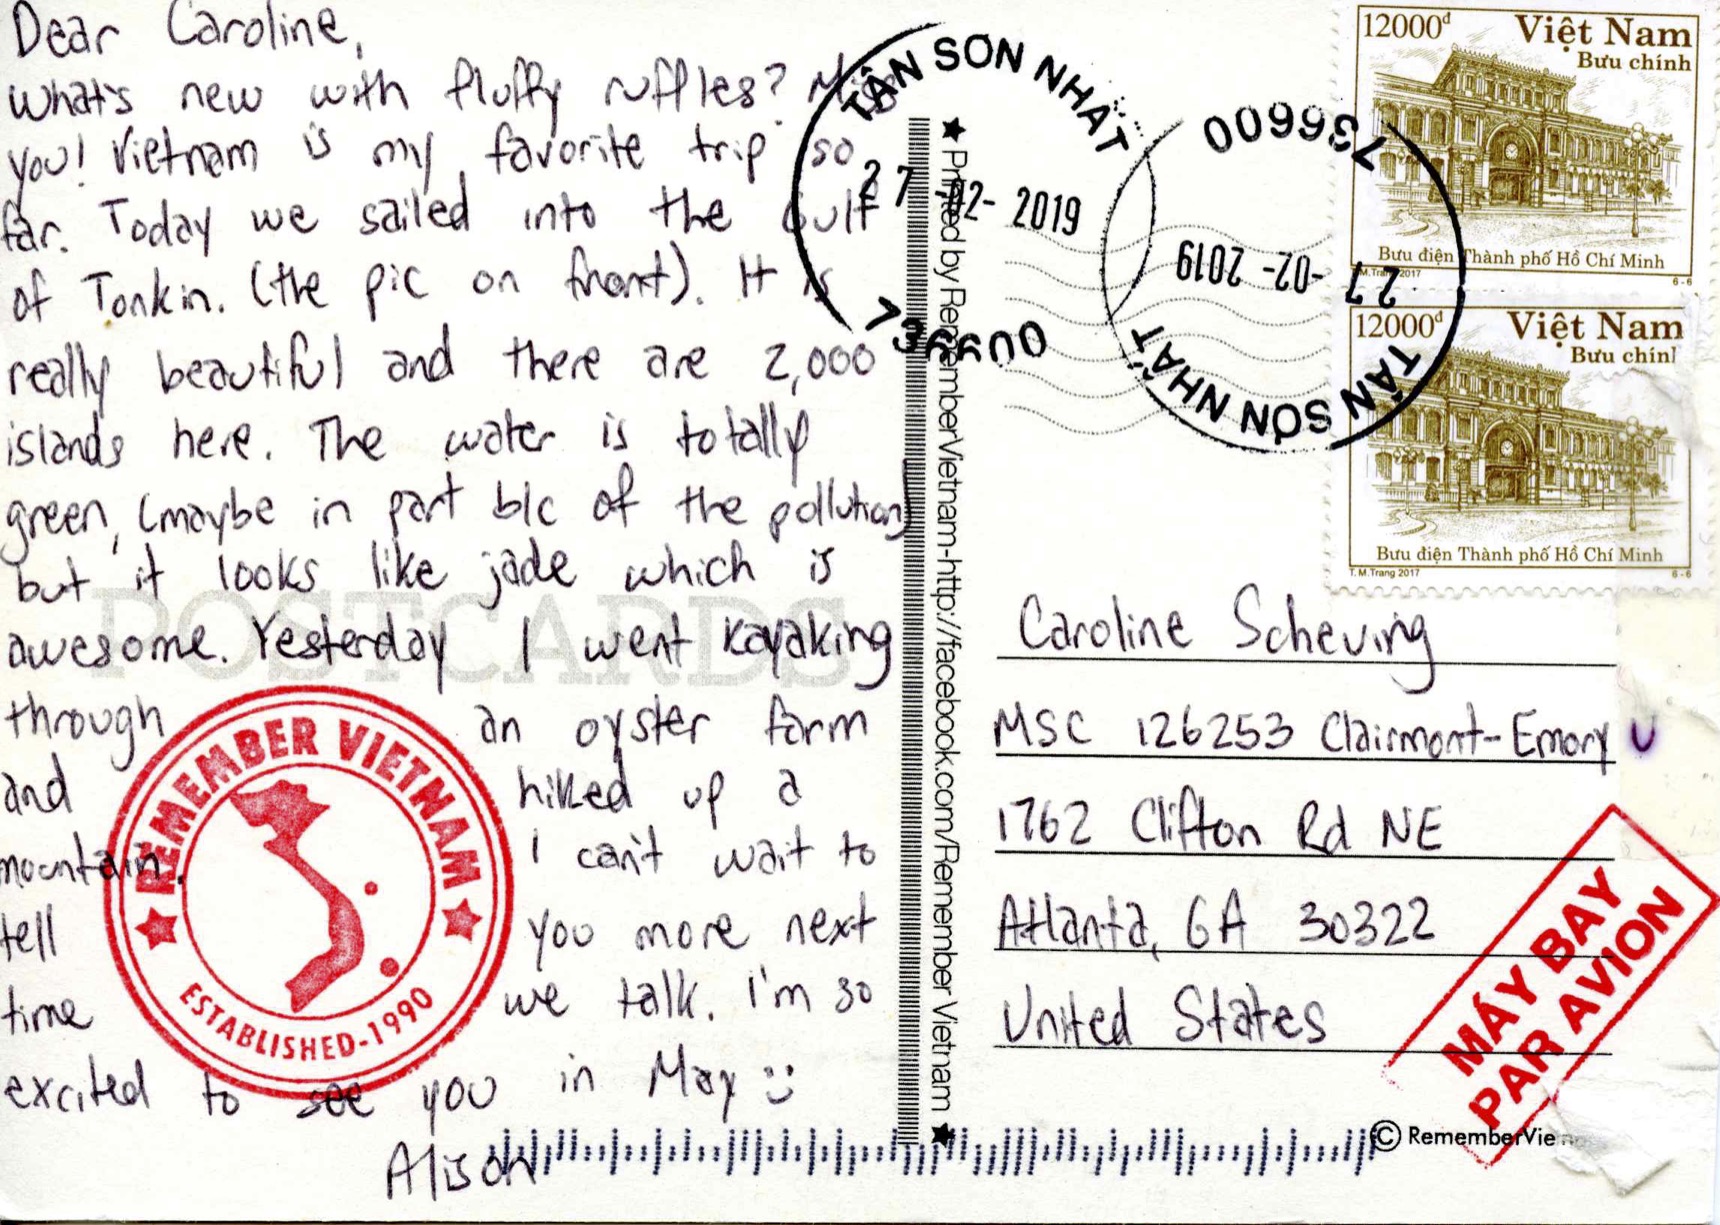 Dear Caroline,
What's new with fluffy ruffles? Miss
you! Vietnam is my favorite trip so
far. Today we sailed into the Gulf
of Tonkin. (the pic on front). It is
really beautiful and there are 2,000
islands here. The water is totally
green, (maybe in part b/c of the pollution)
but it looks like jade which is
awesome. Yesterday I went kayaking
through an oyster farm
and hiked up a
mountain. I can't wait to
tell you more next
time we talk. I'm so
excited to see you in May :)
Alison
POSTCARDS
REMEMBER VIETNAM
ESTABLISHED-1990
★ Printed by RememberVietnam-http://facebook.com/Remember Vietnam ★
TÂN SƠN NHẤT
27-02-2019
736600
736600
27-02-2019
TÂN SƠN NHẤT
12000đ Việt Nam
Bưu chính
Bưu điện Thành phố Hồ Chí Minh
T.M.Trang 2017 6-6
12000đ Việt Nam
Bưu chính
Bưu điện Thành phố Hồ Chí Minh
T.M.Trang 2017 6-6
Caroline Scheving
MSC 126253 Clairmont-Emory U
1762 Clifton Rd NE
Atlanta, GA 30322
United States
MÁY BAY
PAR AVION
© RememberVie